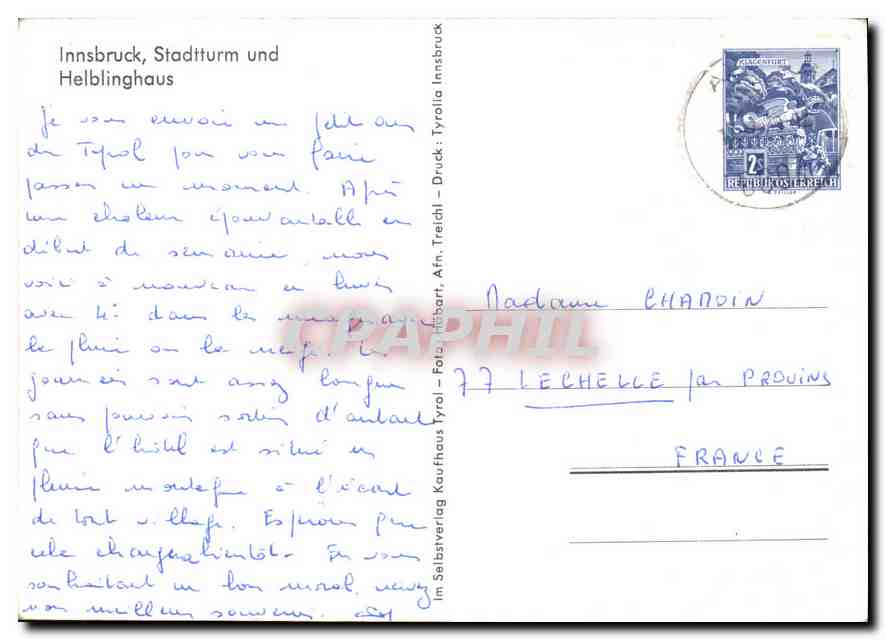 Innsbruck, Stadtturm und
Helblinghaus
Je vous envoie un petit
du Tyrol pour vous faire
passer un moment. Après
une chaleur épouvantable en
début de semaine, nous
voici à nouveau en hiver
avec 4° dans les
la pluie ou la neige. Les
journées sont assez longues
sans pouvoir sortir d'autant
que l'hôtel est situé en
pleine montagne à l'écart
de tout village. Espérons que
cela changera bientôt. En vous
souhaitant un bon moral, recevez
nos meilleurs souvenirs.
Im Selbstverlag Kaufhaus Tyrol - Foto: Hubart, Afn. Treichl - Druck: Tyrolia Innsbruck
KLAGENFURT
2S
REPUBLIK ÖSTERREICH
Madame CHARDIN
77 LECHELLE par PROVINS
FRANCE
CPAPHIL